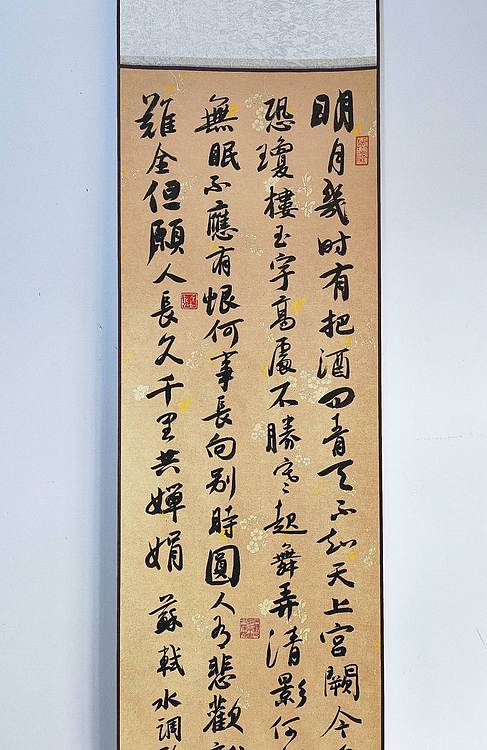 明月幾时有把酒问青天不知天上宮闕今
恐瓊樓玉宇高處不勝寒起舞弄清影何
無眠不應有恨何事長向别時圓人有悲歡
難全但願人長久千里共嬋娟 蘇軾水調